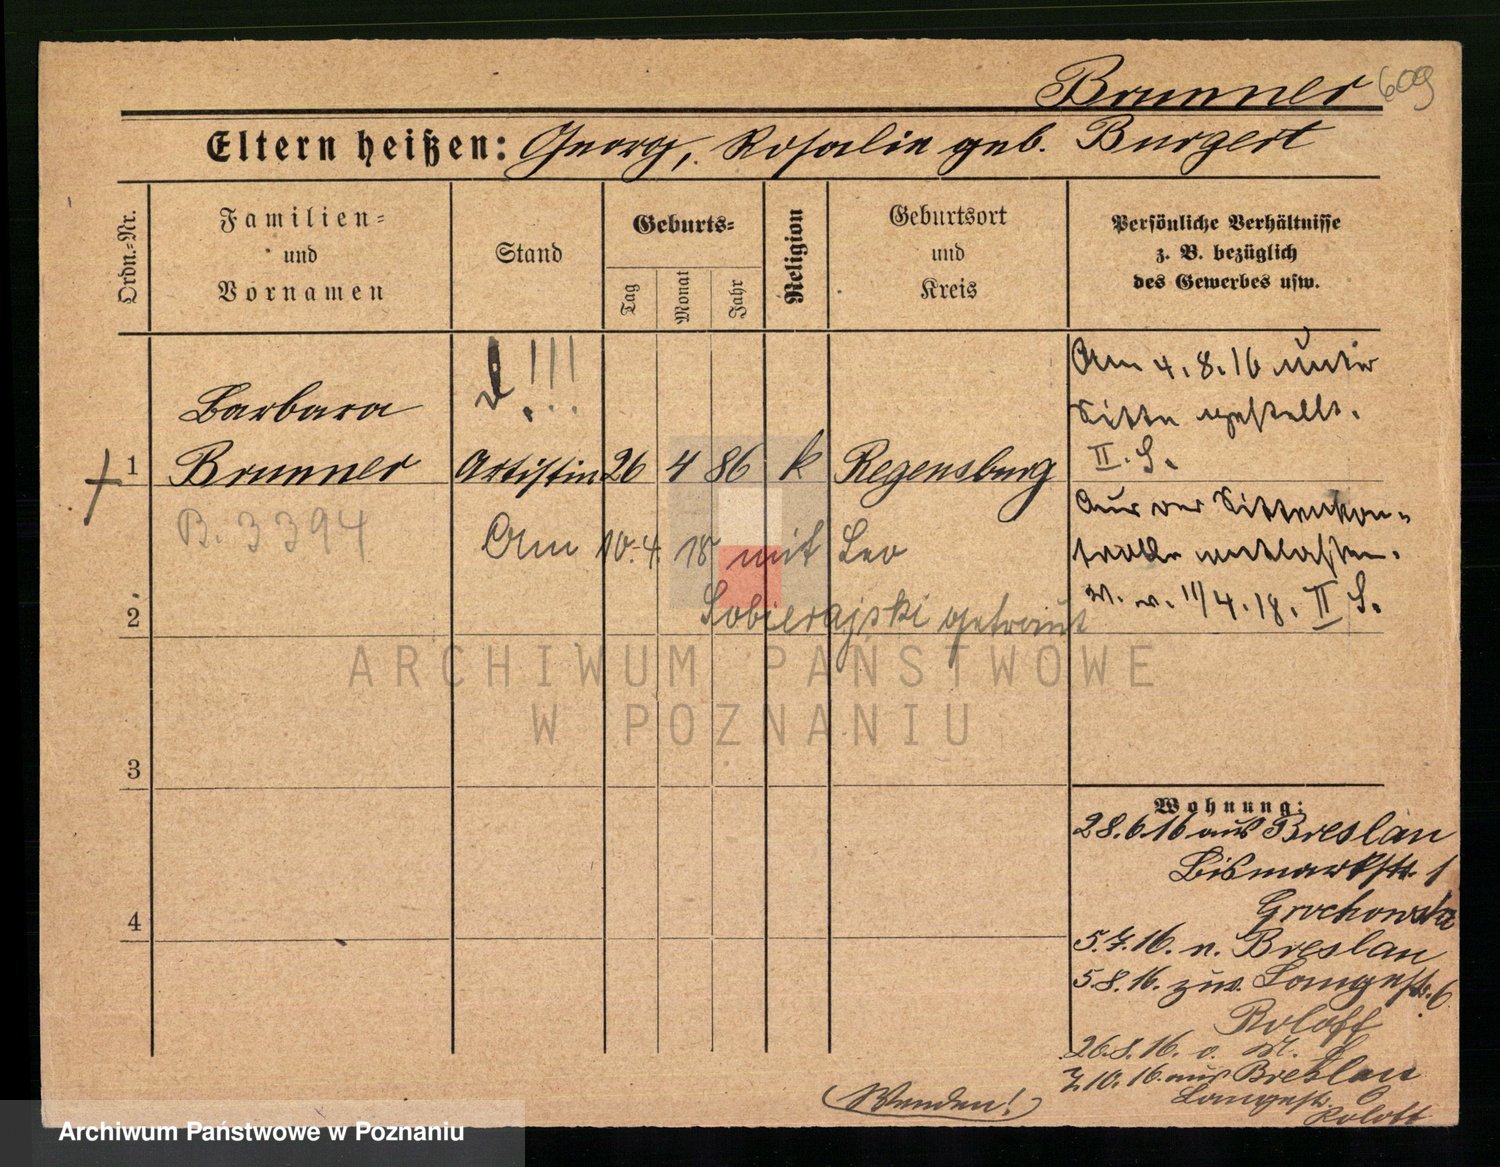 Brunner 609
Eltern heißen: Georg, Rosalie geb. Burgert
Ordn.-Nr.
Familien-
und
Vornamen
Stand
Geburts-
Tag
Monat
Jahr
Religion
Geburtsort
und
Kreis
Persönliche Verhältnisse
z. B. bezüglich
des Gewerbes usw.
!!!
Barbara
1 Brunner Artistin 26 4 86 k Regensburg
Am 4.8.16 unter
Sitte gestellt.
II. S.
B. 3394
Am 10.4. 18 mit Leo
Sobierajski getraut
Aus der Sittenkon-
trolle entlassen.
11/4.18. II S.
2
3
4
Wohnung:
28.6.16 aus Breslau
Bismarkstr. 1
Grochowska
5.7.16. n. Breslau
5.8.16. zur. Langestr. 6
Roloff
26.8.16.
7.10.16. aus Breslau
Langestr. 6
Roloff
(Wenden!)
ARCHIWUM PAŃSTWOWE
W POZNANIU
Archiwum Państwowe w Poznaniu